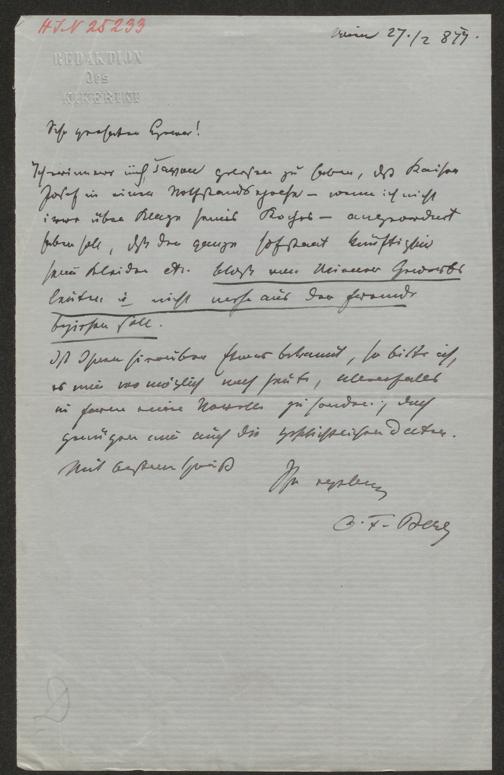 H.I.N 25233
Wien 27./2 877.
REDAKTION
des
KIKERIKI
Sehr geehrter Herr!
Ich erinnere mich, davon gelesen zu haben, daß Kaiser
Josef in einer Nothstandsepoche – wenn ich nicht
irre über Klage seines Kochs – angeordnet
haben soll, daß der ganze Hofstaat künftighin
seine Kleider etc. bloß von Wiener Gewerbs
leuten u. nicht mehr aus der Fremde
beziehen soll.
Ist Ihnen hierüber Etwas bekannt, so bitte ich,
es mir wo möglich noch heute, allenfalls
in Form einer Novelle zu senden, doch
genügen mir auch die geschichtlichen Daten.
Mit bestem Gruß
Ihr ergebener
O. F. Berg